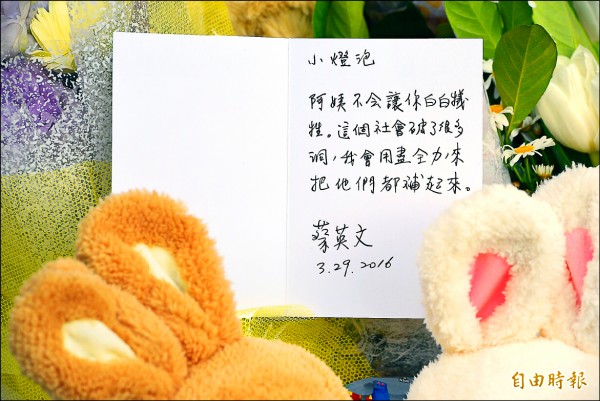 小燈泡
阿姨不會讓你白白犧
牲。這個社會破了很多
洞，我會用盡全力，來
把他們都補起來。
蔡英文
3.29.2016
自由時報